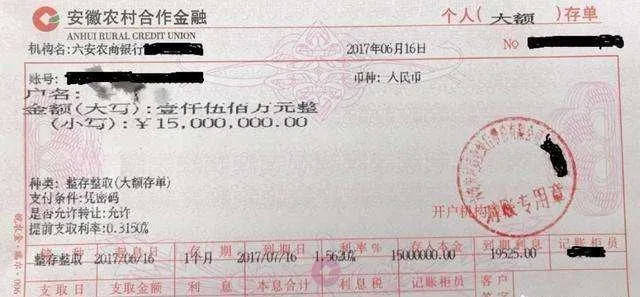 安徽农村合作金融
ANHUI RURAL CREDIT UNION
个人(大额)存单
机构名:六安农商银行
2017年06月16日
No
账号:
币种:人民币
户名:
金额(大写):壹仟伍佰万元整
(小写):￥15,000,000.00
种类:整存整取(大额存单)
支付条件:凭密码
是否允许转让:允许
提前支取利率:0.3150%
开户机构
对账专用章
储种 起息日 存期 到期日 利率% 存入本金 到期利息 记账柜员
整存整取 2017/06/16 1个月 2017/07/16 1.5620% 15000000.00 19525.00
支取日 支取金额 利息 利息税 记账柜员 客户